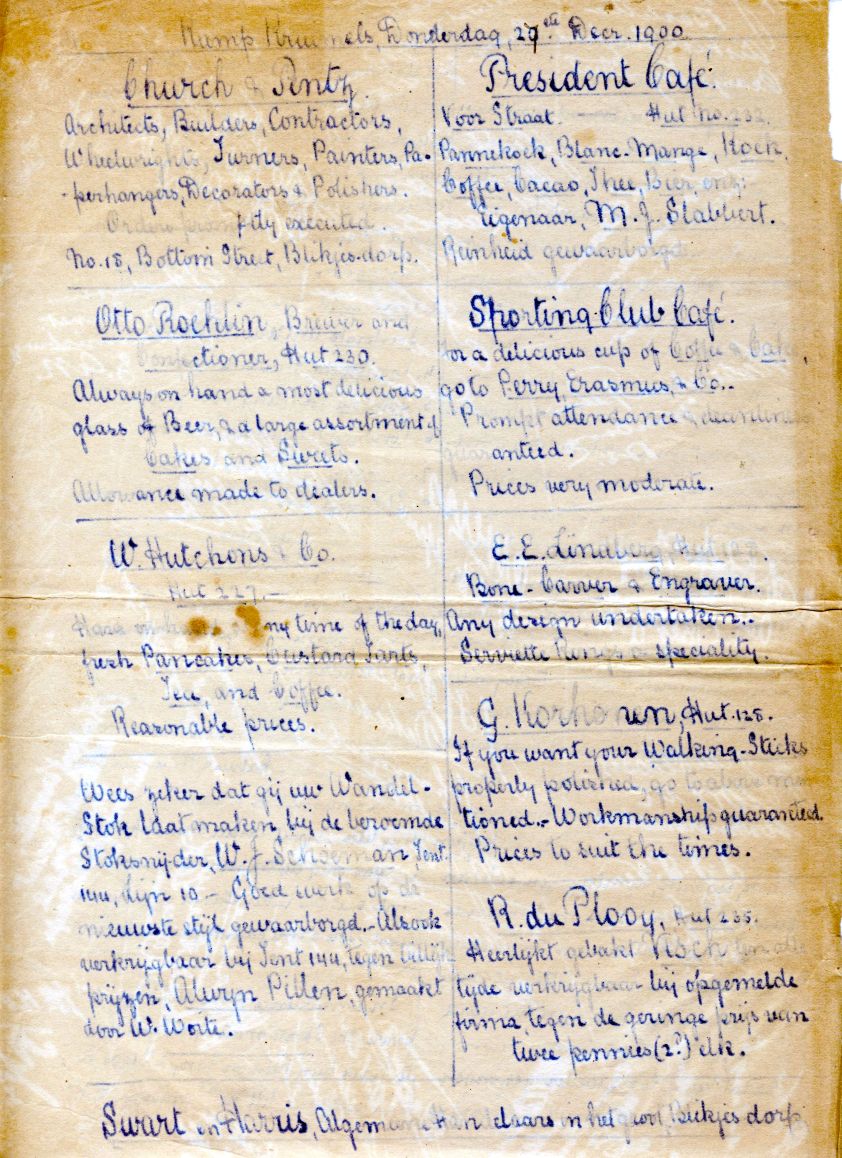 Kamp Kruimels, Donderdag, 27ste Decr. 1900.
Church & Pentz.
Architects, Builders, Contractors,
Wheelwrights, Turners, Painters, Pa-
-perhangers, Decorators & Polishers.
Orders promptly executed.
No. 18, Bottom Street, Blikjes-dorp.
Otto Roehlin, Brewer and
Confectioner, Hut 230.
Always on hand a most delicious
glass of Beer, & a large assortment of
Cakes and Sweets.
Allowance made to dealers.
W. Hutchons & Co.
Hut 227.
Have on hand any time of the day,
fresh Pancakes, Custard Tarts,
Tea, and Coffee.
Reasonable prices.
Wees zeker dat gij uw Wandel-
Stok laat maken bij de beroemde
Stoksnijder, W. J. Schoeman, Tent
144, Lijn 10 - Goed werk op de
nieuwste stijl gewaarborgd. - Alsook
verkrijgbaar bij Tent 144, tegen billijk
prijzen, Alwyn Pillen, gemaakt
door W. Worte.
President Café.
Vóór Straat. Hut No. 232.
Pannekoek, Blanc-Mange, Koek,
Coffee, Cacao, Thee, Bier, enz:
Eigenaar, M. J. Slabbert.
Reinheid gewaarborgd
Sporting-Club Café.
For a delicious cup of Coffee & Cake,
go to Perry, Erasmus, & Co..
Prompt attendance & cleanliness
guaranteed.
Prices very moderate.
E. E. Lindberg, Hut 108.
Bone-Carver & Engraver.
Any design undertaken..
Serviette Rings a speciality.
G. Korhouen, Hut 128.
If you want your Walking-Sticks
properly polished, go to above men
tioned. - Workmanship guaranteed.
Prices to suit the times.
R. du Plooy, Hut 235.
Heerlijkt gebakt Visch ten alle
tijde verkrijgbaar bij opgemelde
firma, tegen de geringe prijs van
twee pennies (2d) elk.
Swart en Harris, Algemeene Handelaars in het groot, Blikjesdorp